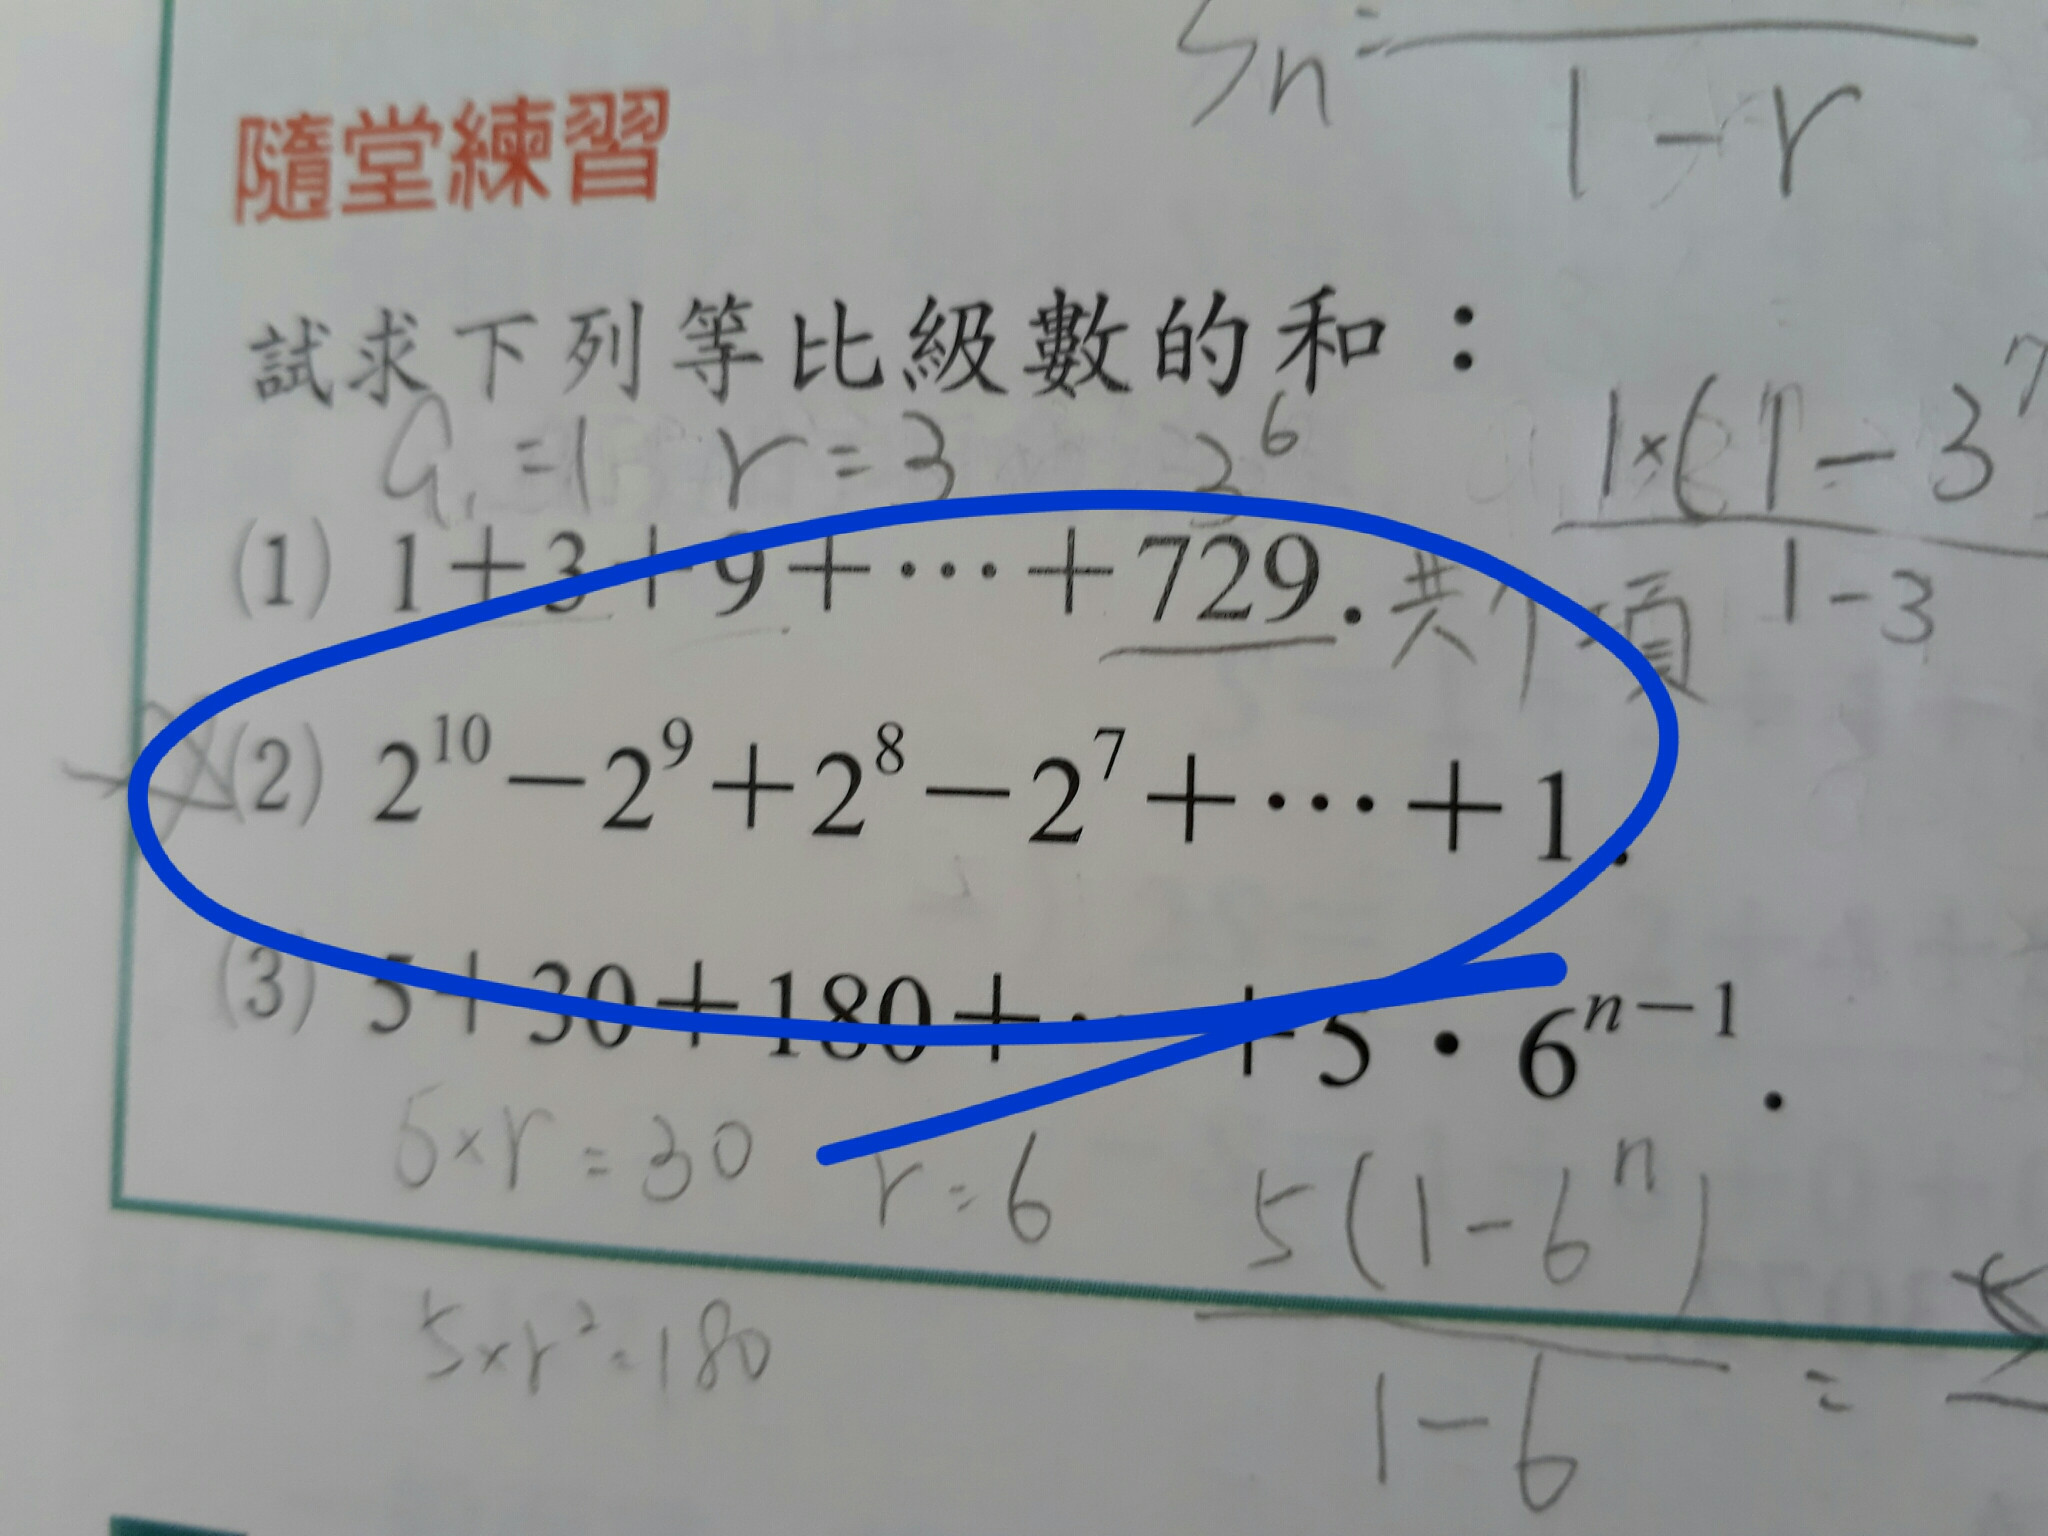 Sn=
1-r
隨堂練習
試求下列等比級數的和：
a₁=1 r=3 3⁶
1×(1-3⁷
1-3
(1) 1+3+9+⋯+729. 共7項
(2) 2¹⁰-2⁹+2⁸-2⁷+⋯+1.
(3) 5+30+180+⋯+5·6ⁿ⁻¹.
5×r=30 r=6
5(1-6ⁿ)
1-6
=
5×r²=180